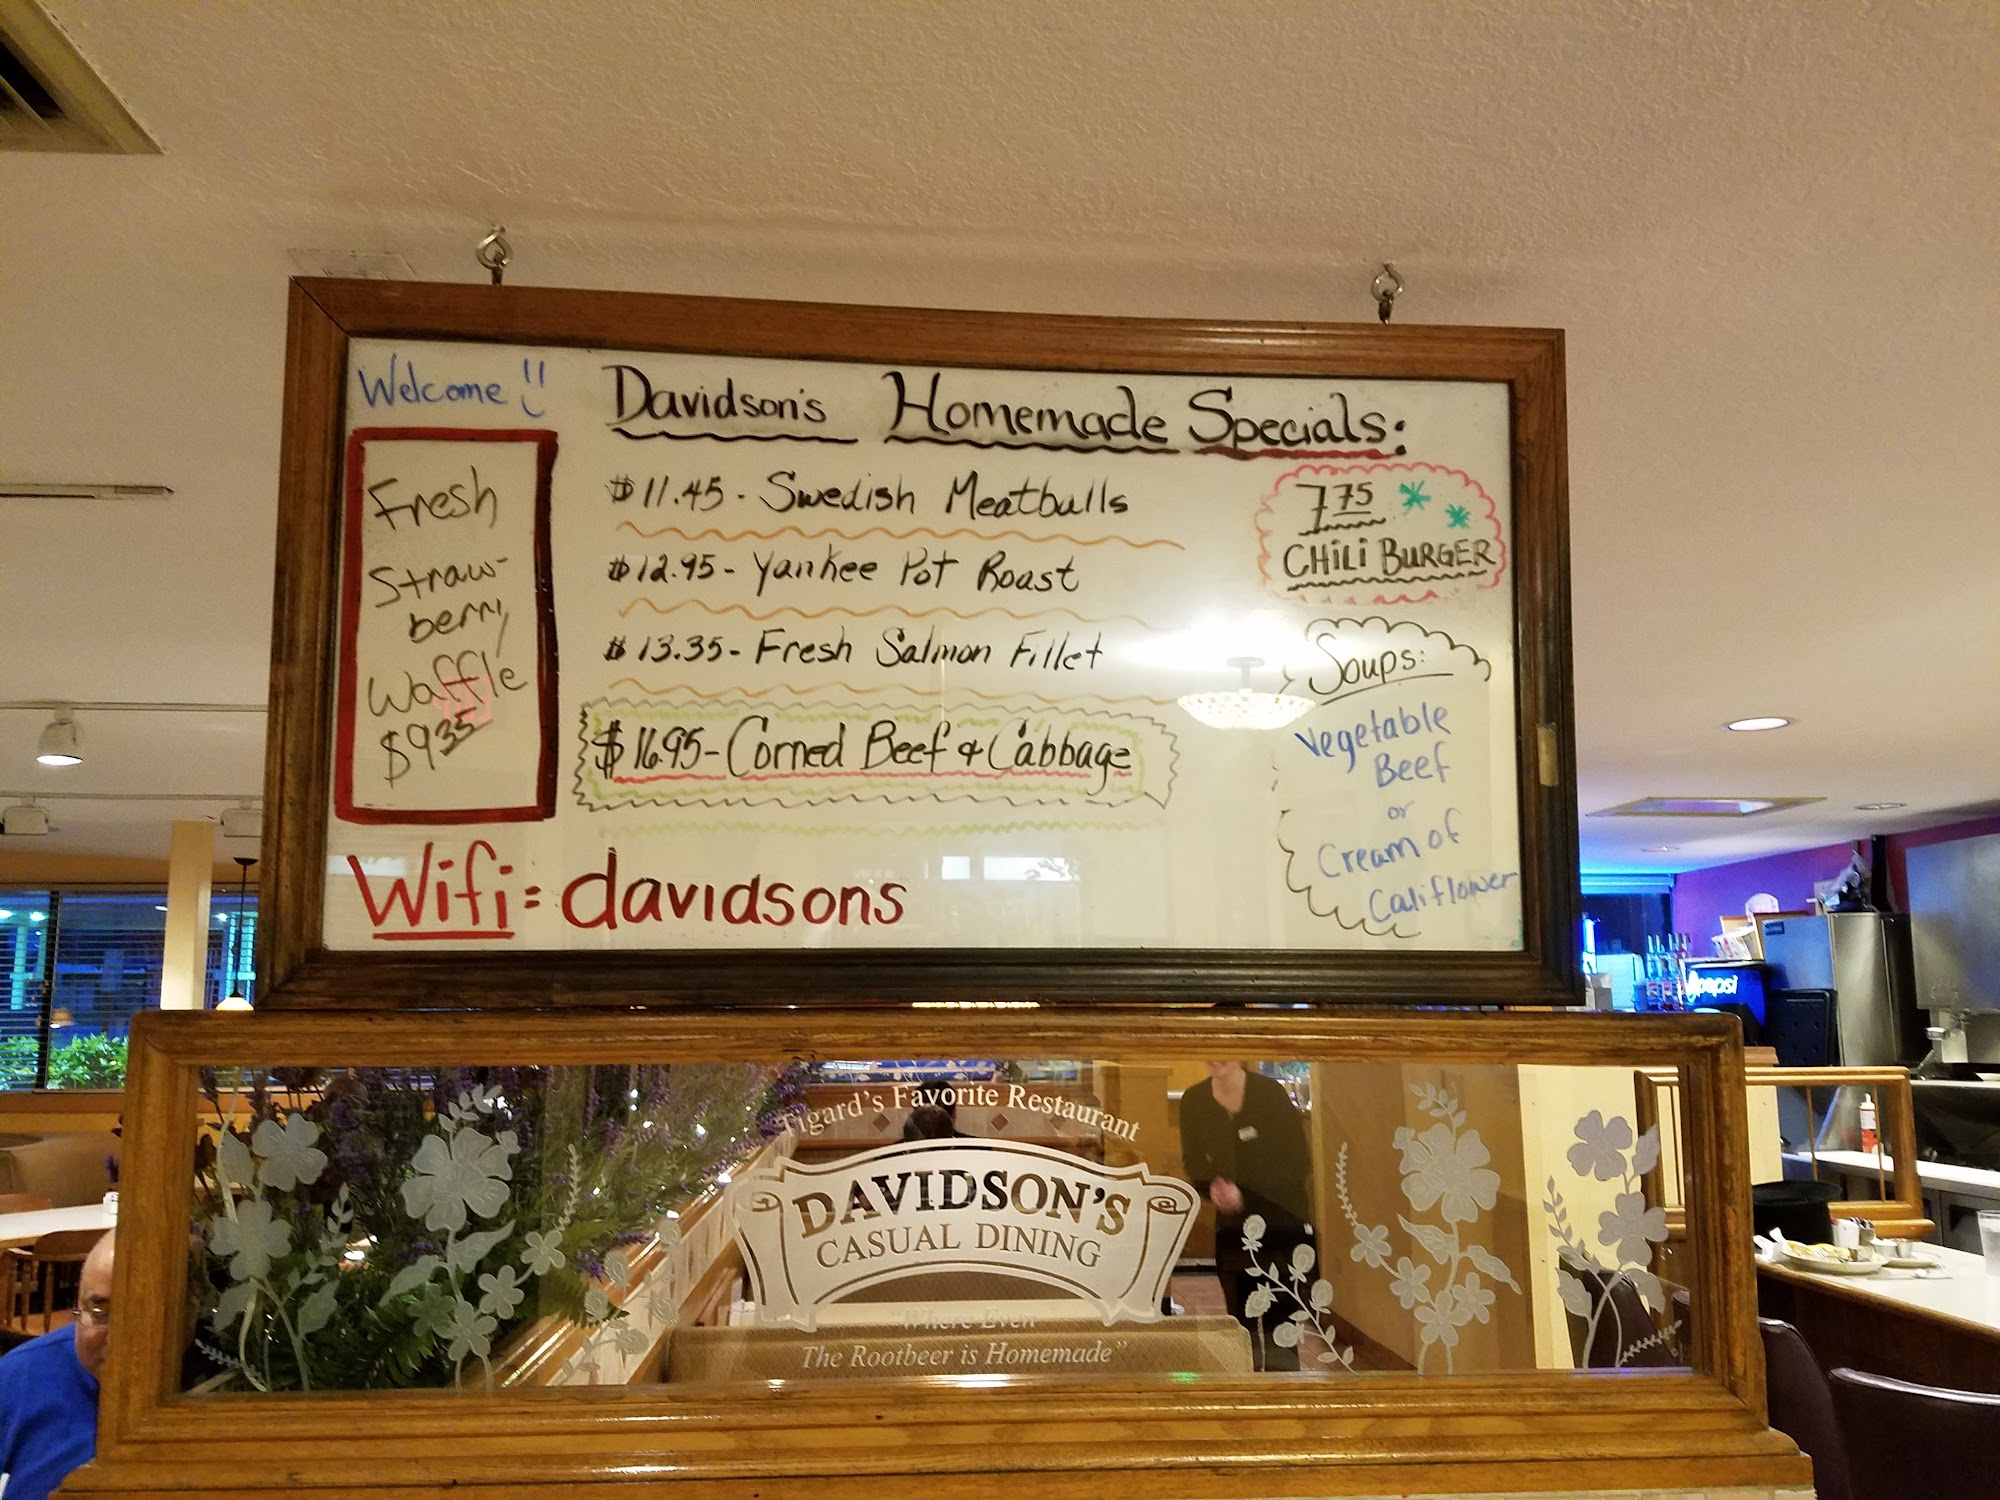 Welcome!!
Davidson's Homemade Specials:
Fresh
Straw-
berry
Waffle
$9.35
$11.45 - Swedish Meatballs
$12.95 - Yankee Pot Roast
$13.35 - Fresh Salmon Fillet
$16.95 - Corned Beef & Cabbage
7.75
CHILI BURGER
Soups:
Vegetable
Beef
or
Cream of
Califlower
Wifi = davidsons
pepsi
Tigard's Favorite Restaurant
DAVIDSON'S
CASUAL DINING
"Where Even
The Rootbeer is Homemade"